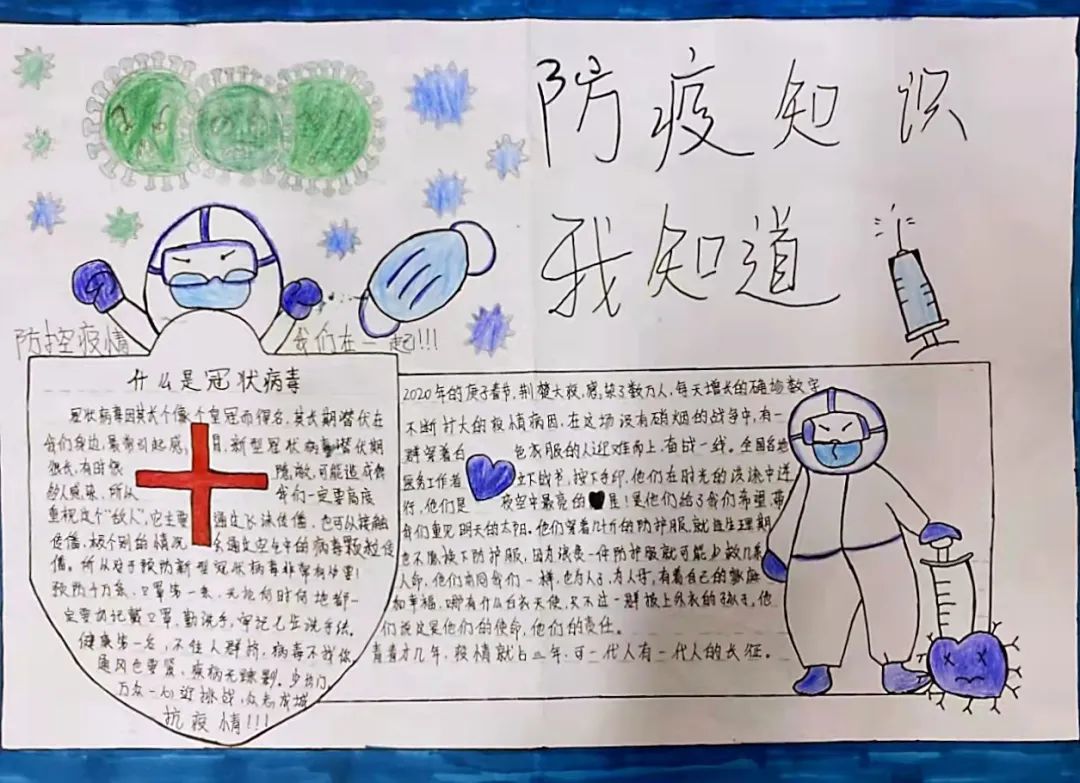 防疫知识
我知道
防控疫情 我们在一起!!!
什么是冠状病毒
冠状病毒因其长个像个皇冠而得名,其长期潜伏在
我们身边,最常引起感 新型冠状病毒潜伏期
很长,有时候 隐蔽,可能造成
的人感染,所以 我们一定要高度
重视这个"敌人",它主要 通过飞沫传播,也可以接触
传播,极个别的情况 会通过空气中的病毒颗粒传
播。所以对于预防新型冠状病毒非常有必要!
预防千万条,口罩第一条,无论何时何地都一
定要切记戴口罩,勤洗手,牢记七步洗手法。
健康第一名,不住人群挤,病毒不找你。
通风也要紧,疾病无踪影。少出门,
万众一心迎挑战,众志成城
抗疫情!!!
2020年的庚子春节,荆楚大疫,感染了数万人,每天增长的确诊数字
不断讨大的疫情病因,在这场没有硝烟的战争中,有一
群穿着白 色衣服的人迎难而上,奋战一线。全国各地
医务工作者 立下战书,按下手印,他们在时光的滚滚中逆
行,他们是 夜空中最亮的 星!是他们给了我们希望,带
我们重见明天的太阳。他们穿着几斤的防护服,就连生理期
也不愿换下防护服,因为浪费一件防护服就可能少救几条
人命,他们亦同我们一样,也为人子,为人母,有着自己的家庭
和幸福,哪有什么白衣天使,只不过一群披上外衣的孩子,他
们说这是他们的使命,他们的责任。
青春才几年,疫情就占三年,可一代人有一代人的长征。